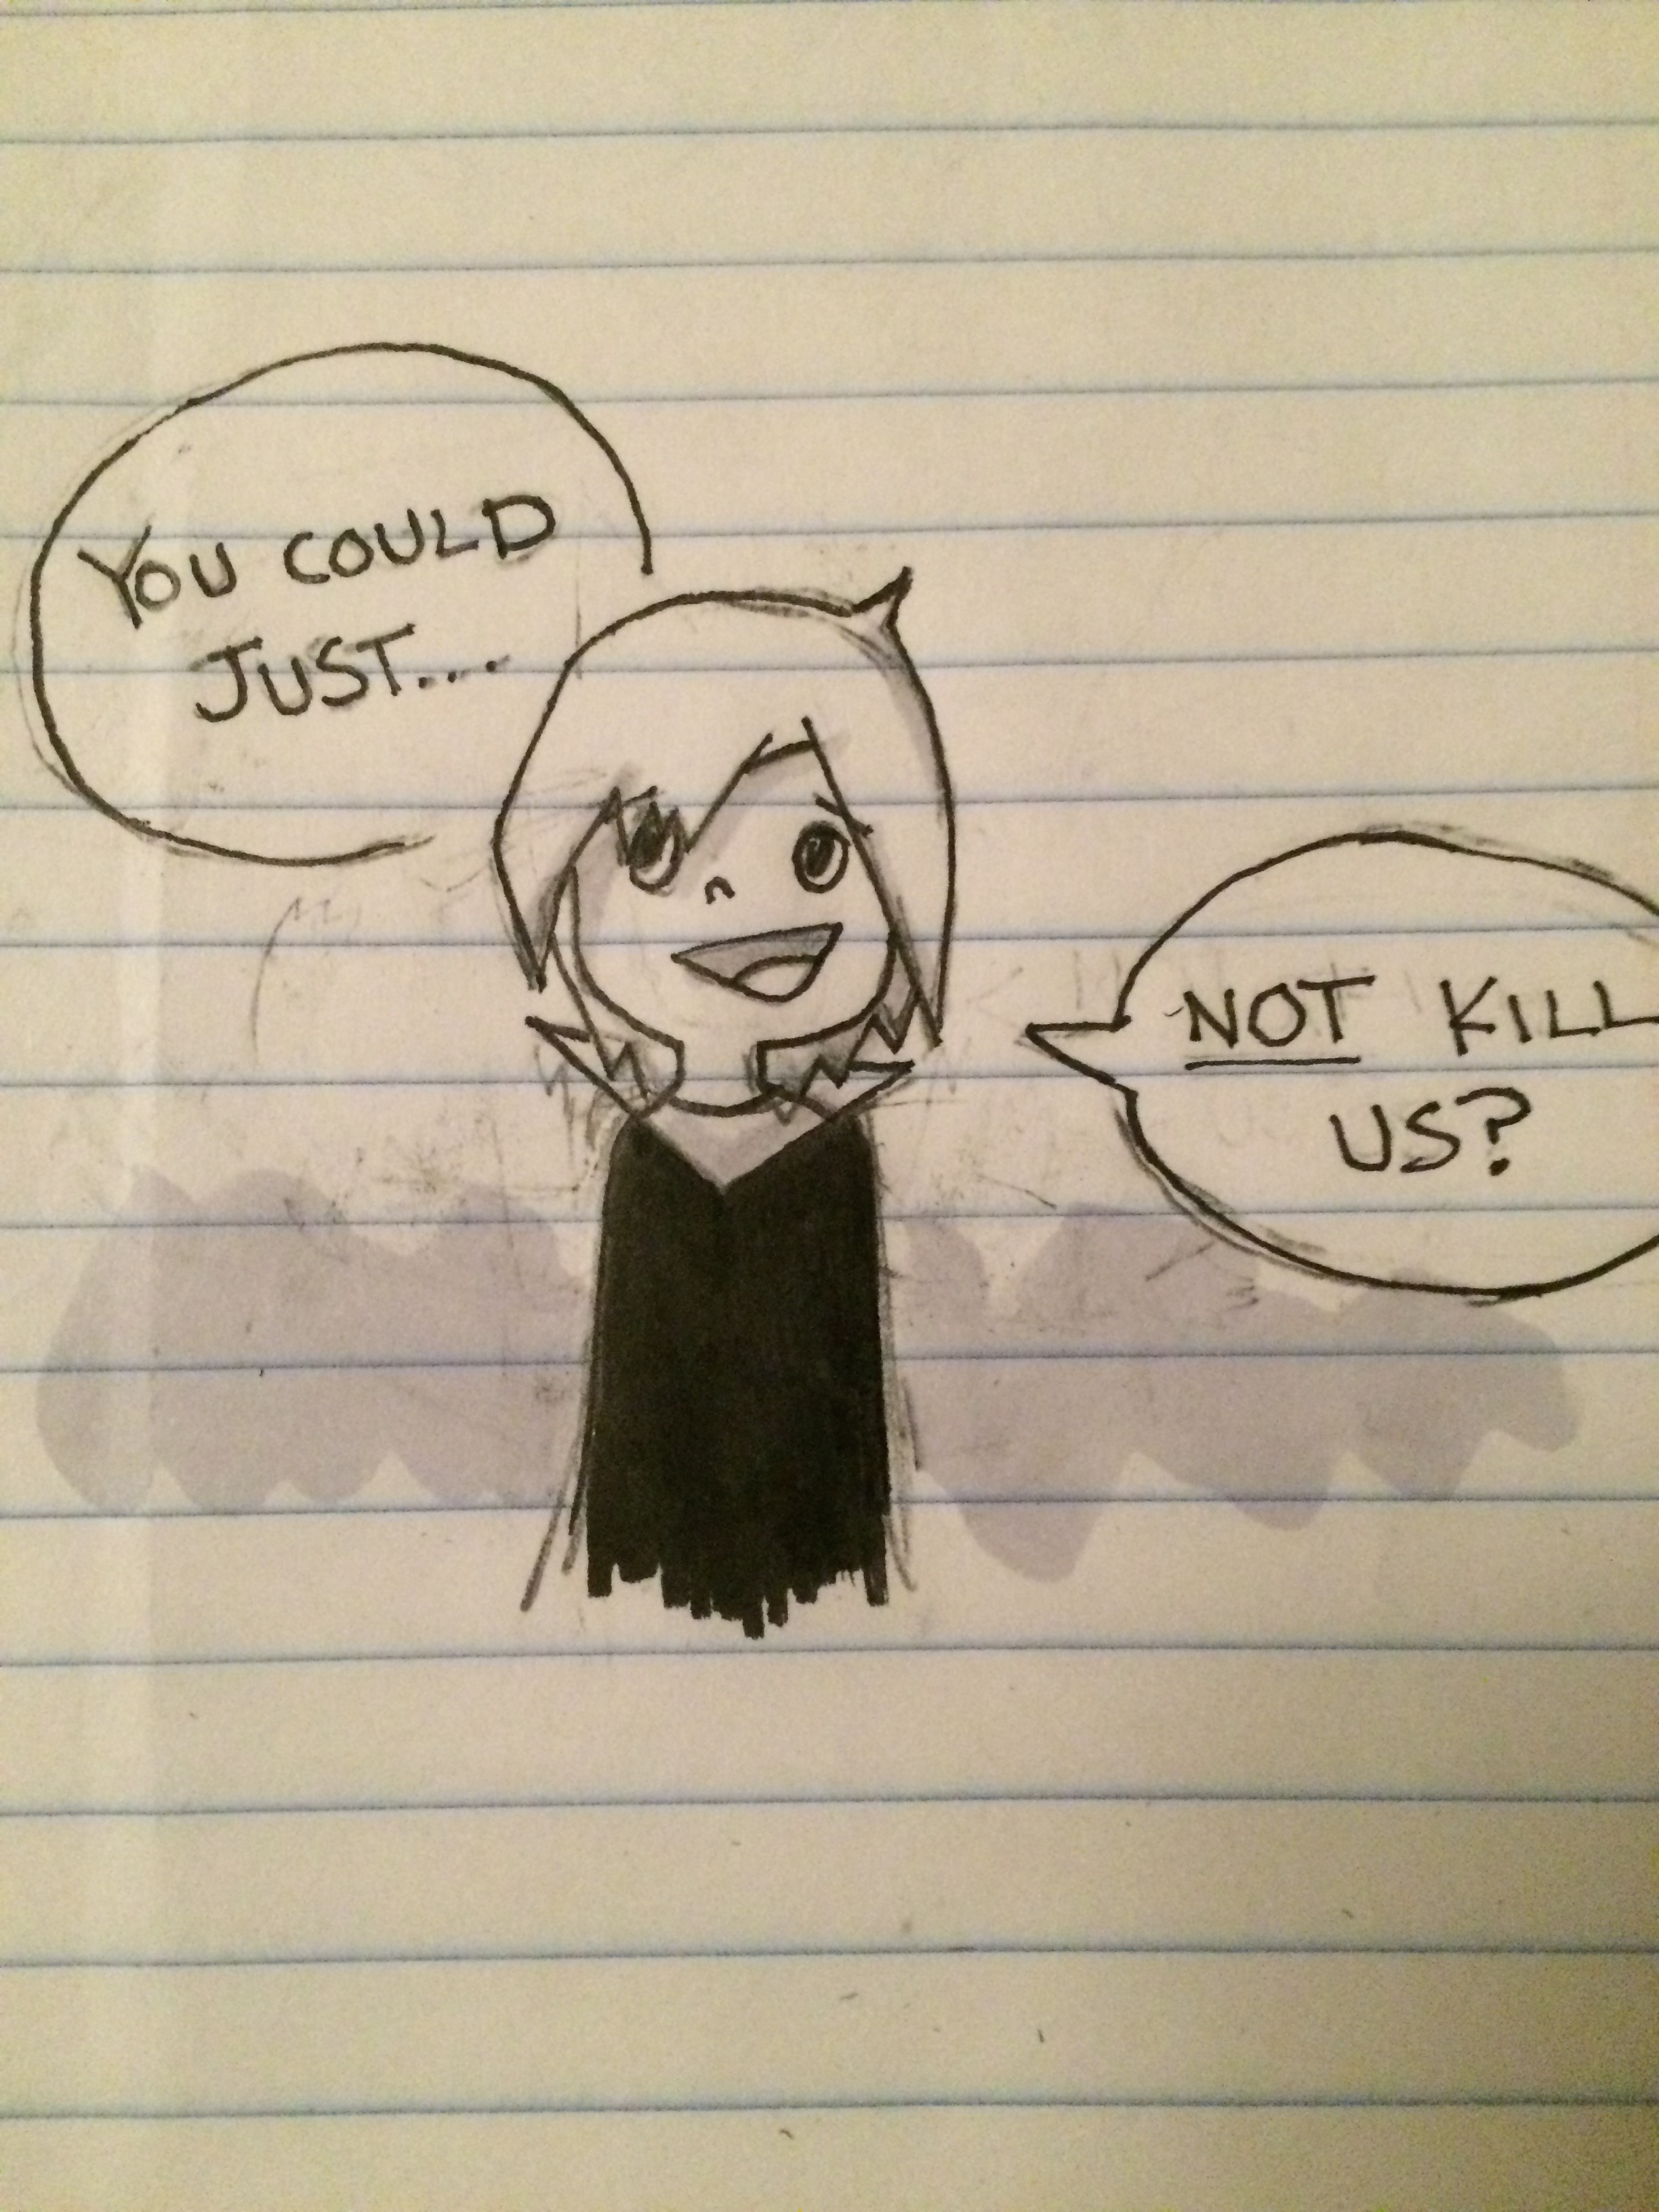 YOU COULD
JUST...
NOT KILL
US?